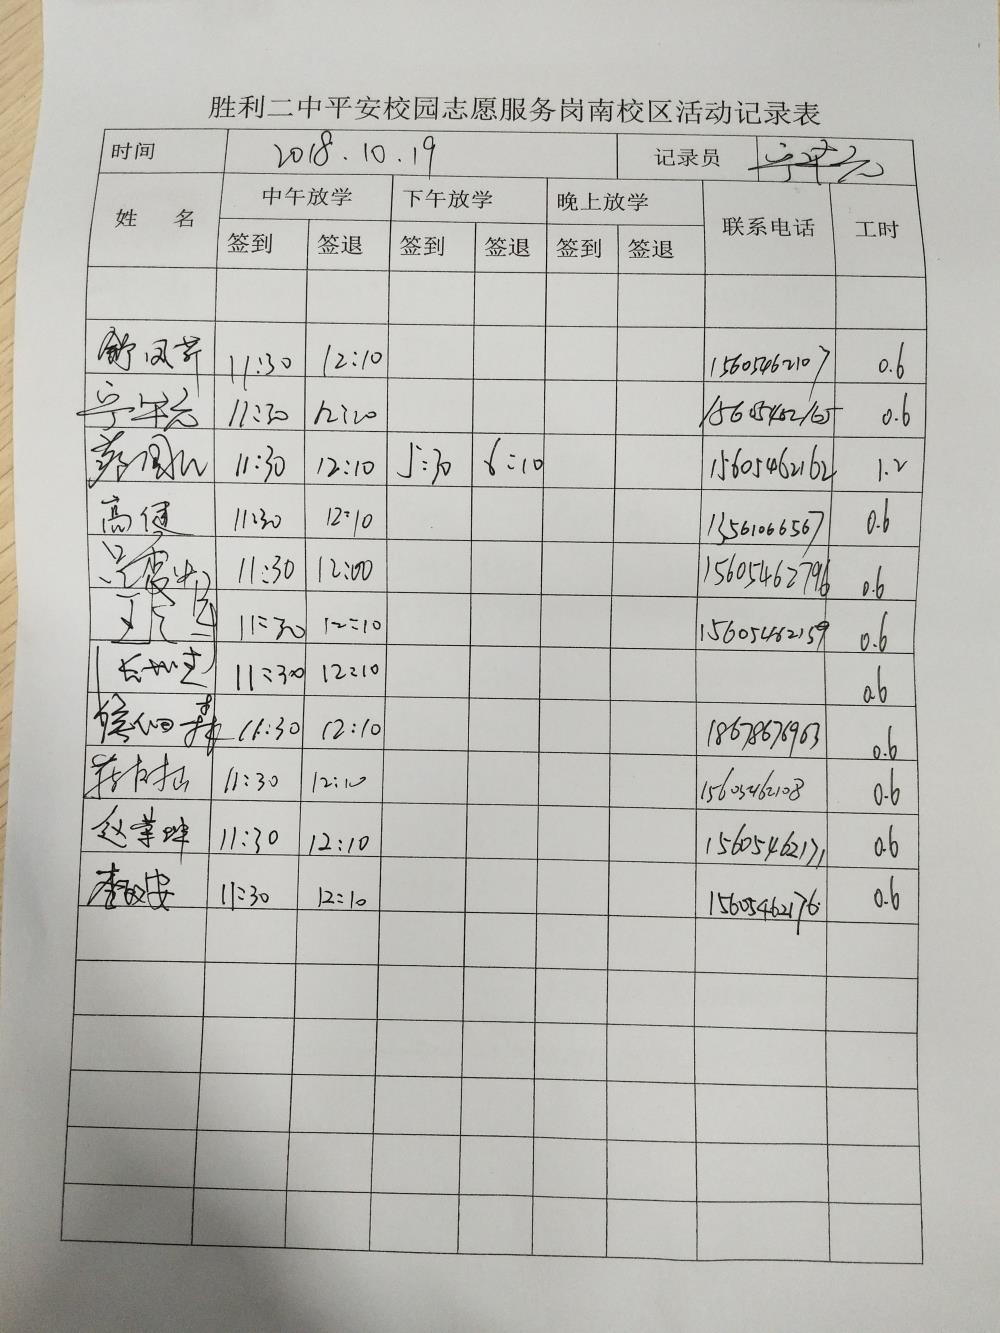 胜利二中平安校园志愿服务岗南校区活动记录表
时间 2018.10.19 记录员
姓 名 中午放学 下午放学 晚上放学 联系电话 工时
签到 签退 签到 签退 签到 签退
11:30 12:10 15605462107 0.6
11:30 0.6
11:30 12:10 5:30 6:10 15605462162 1.2
高健 11:30 12:10 13561066567 0.6
11:30 12:00 15605462796 0.6
11:30 12:10 15605462159 0.6
11:30 12:10 0.6
11:30 12:10 18678676963 0.6
11:30 12:10 15605462108 0.6
赵业坤 11:30 12:10 15605462171 0.6
李政安 11:30 12:10 15605462176 0.6